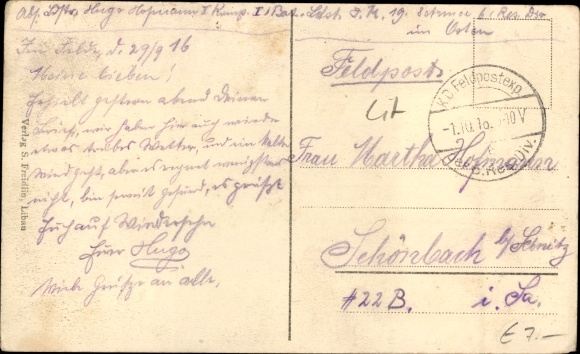 Abs. Ldstm. Hugo Hofmann I Komp. I Bat. Ldst. I. R. 19.
im Osten
Im Felde, d. 29/9 16
Meine Lieben!
Erhielt gestern abend Deinen
Brief, wir haben hier auch wieder
etwas trübes Wetter, und ein kalter
Wind geht, aber es regnet wenigstens
nicht, bin soweit gesund, es grüßt
Euch auf Wiedersehn
Euer Hugo
Viele Grüße an alle.
Verlag S. Freidlin, Libau
Feldpost
K.D. Feldpostexp.
-1.10.16. 9-10 V
der 8. Res. Div.
Frau Martha Hofmann
Schönbach b/ Sebnitz
#22 B. i. Sa.
€ 7.-